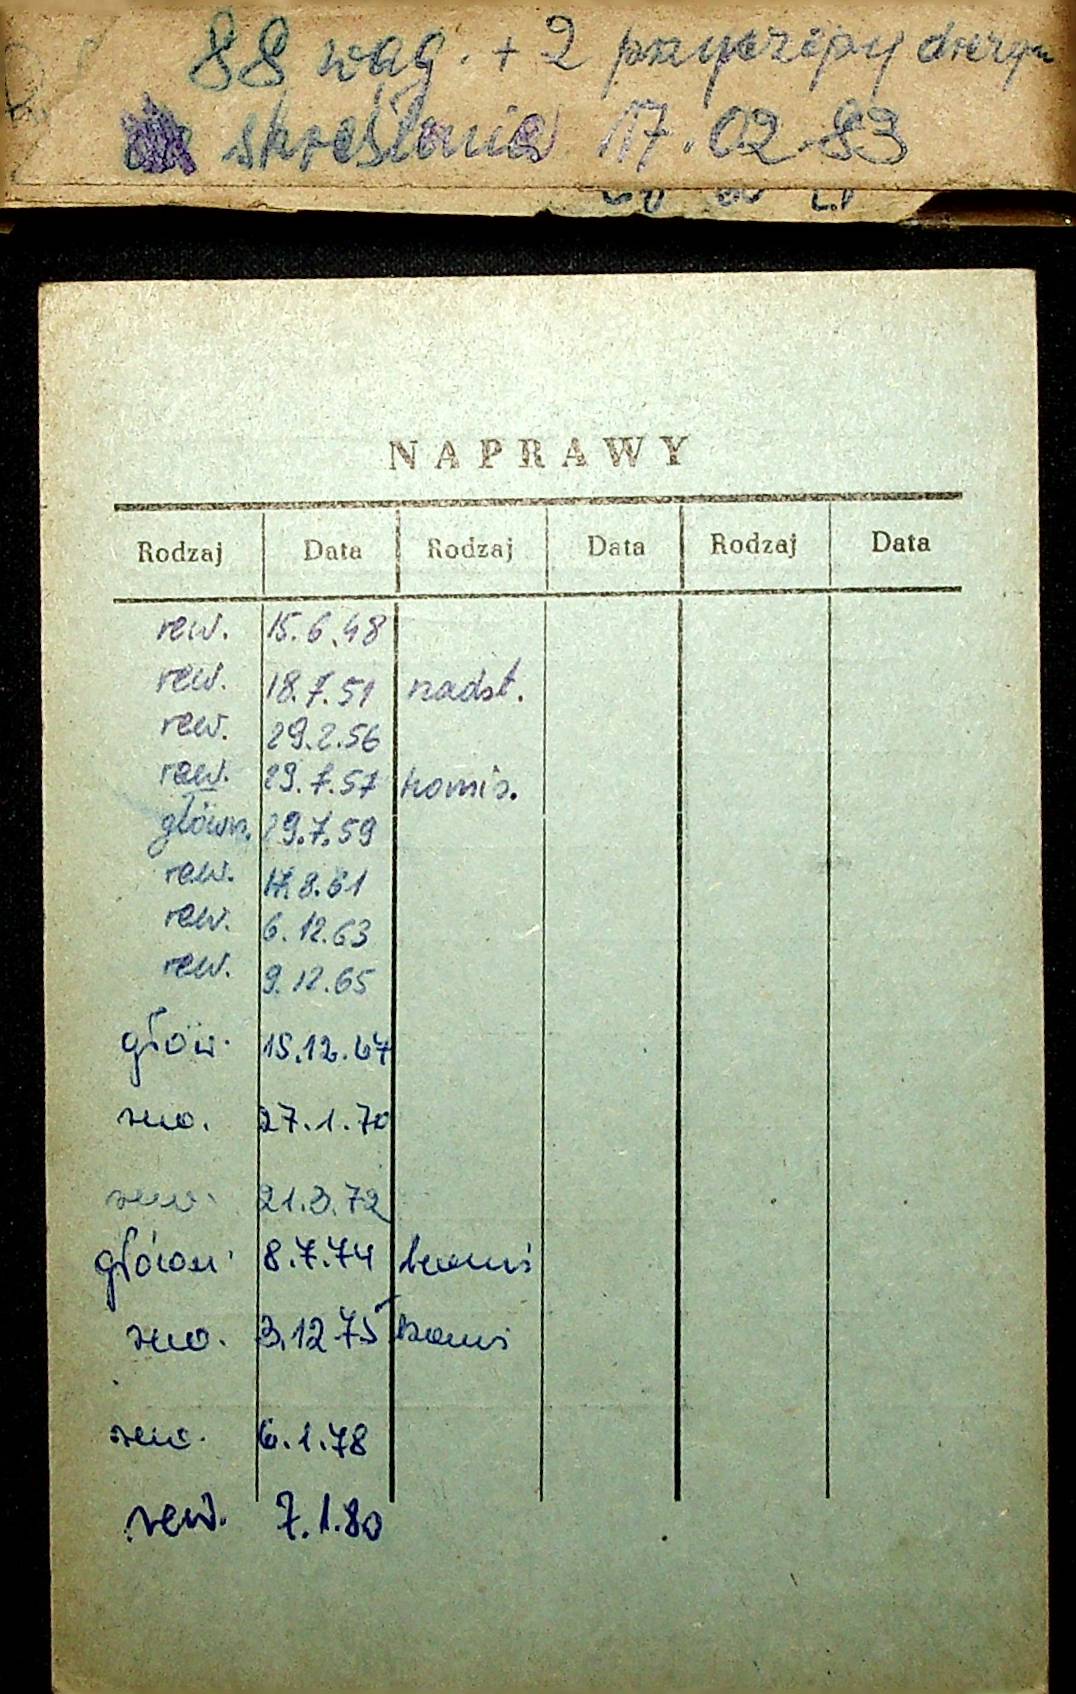 88 wag. + 2 przyczepy
skreślenia 17.02.83
NAPRAWY
Rodzaj Data Rodzaj Data Rodzaj Data
rew. 15.6.48
rew. 18.7.51 nadst.
rew. 29.2.56
rew. 29.7.57 komis.
główn. 29.7.59
rew. 8.61
rew. 6.12.63
rew. 9.12.65
głów. 15.12.67
rew. 27.1.70
rew. 21.3.72
główn. 8.7.74 komis
rew. 3.12.75 komis
rew. 6.1.78
rew. 7.1.80